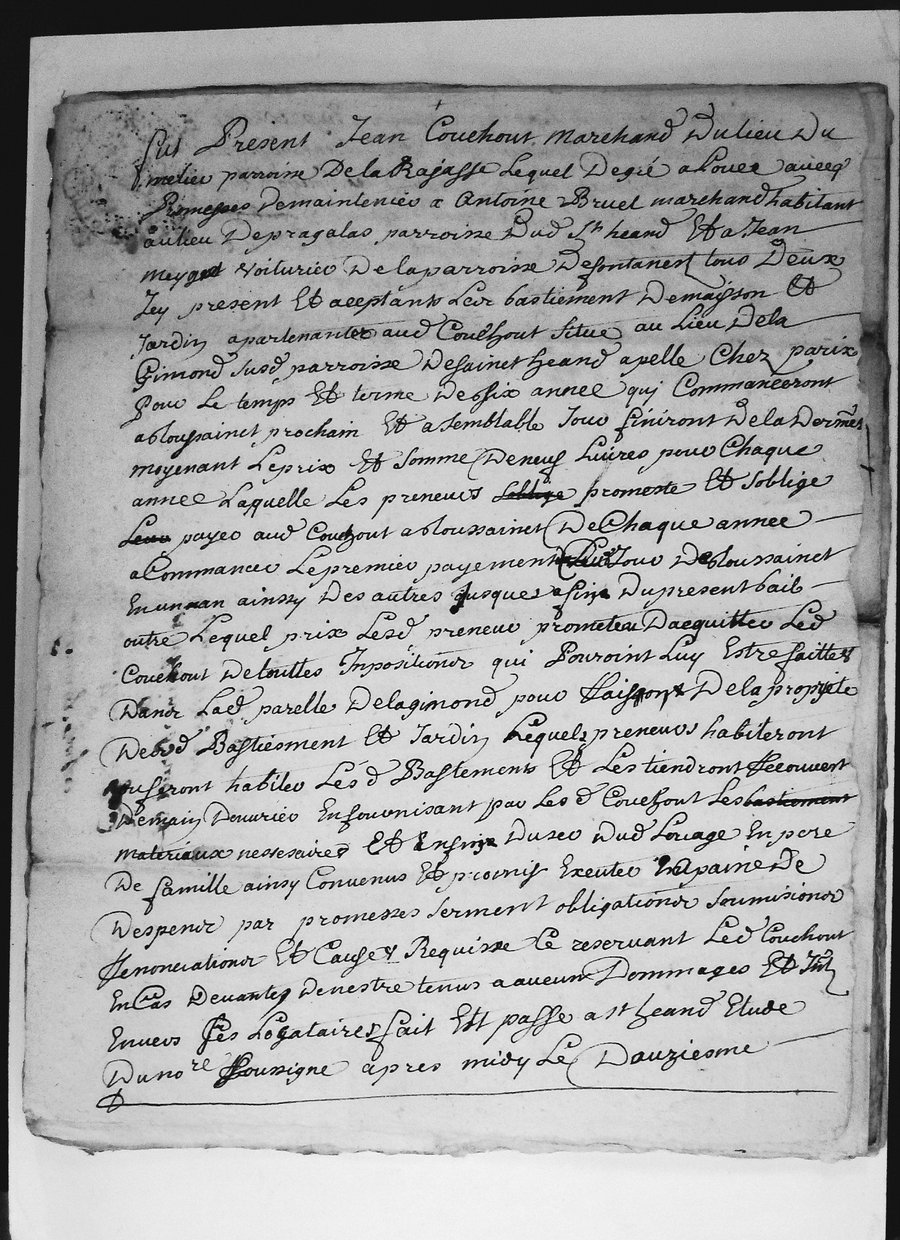 fut Present Jean Couchout marchand Du lieu Du
parroisse De la Rajasse Lequel De gré a Louee aveeq
Promesses de maintenier a Antoine Bruel marchand habitant
au lieu De pragalas parroisse Dud St heand Et a Jean
voiturier De la parroisse De fontanest tous Deux
Icy present Et aceptants Leur bastiement De mayson Et
Jardin apartenantes aud Couchout Situe au Lieu Dela
Gimond Susd parroisse De sainct heand apelle Chez parix
pour Le temps Et terme De six année qui Commanceront
a toussainct prochain Et a semblable Jour finiront De la
moyenant Le prix Et Somme De neuf Livres pour Chaque
annee Laquelle Les preneurs promeste Et soblige
payer aud Couchout a toussainct De Chaque annee
a Commancer Le premier payement Jour De toussainct
En un an ainssy Des autres jusques a fin Du present bail
outre Lequel prix Lesd preneur Dacquitter Led
Couchout De touttes Inpositions qui Pouroint Luy Estre faittes
Dans Lad parelle De la gimond pour Raisons De la propriete
Desd Bastiesment Et Jardin Lequels preneurs habiteront
ou feront habiter Lesd Bastements Et Les tiendront Recouvert
De main Douvrier En fournisant par Lesd Couchout Les bastiement
materiaux nessesaires Et Dud Louage En pere
De famille ainsy Convenus Et promis Executer a paine De
Despens par promesses serment obligations soumisions
Renonciations Et Causes Requisse Ce reservant Led Couchout
En Cas De nestre tenus a aucun Dommages Et
Envers ses Locataires fait Et passe a st heand Etude
Du nore Soussigne apres midy Le Douziesme